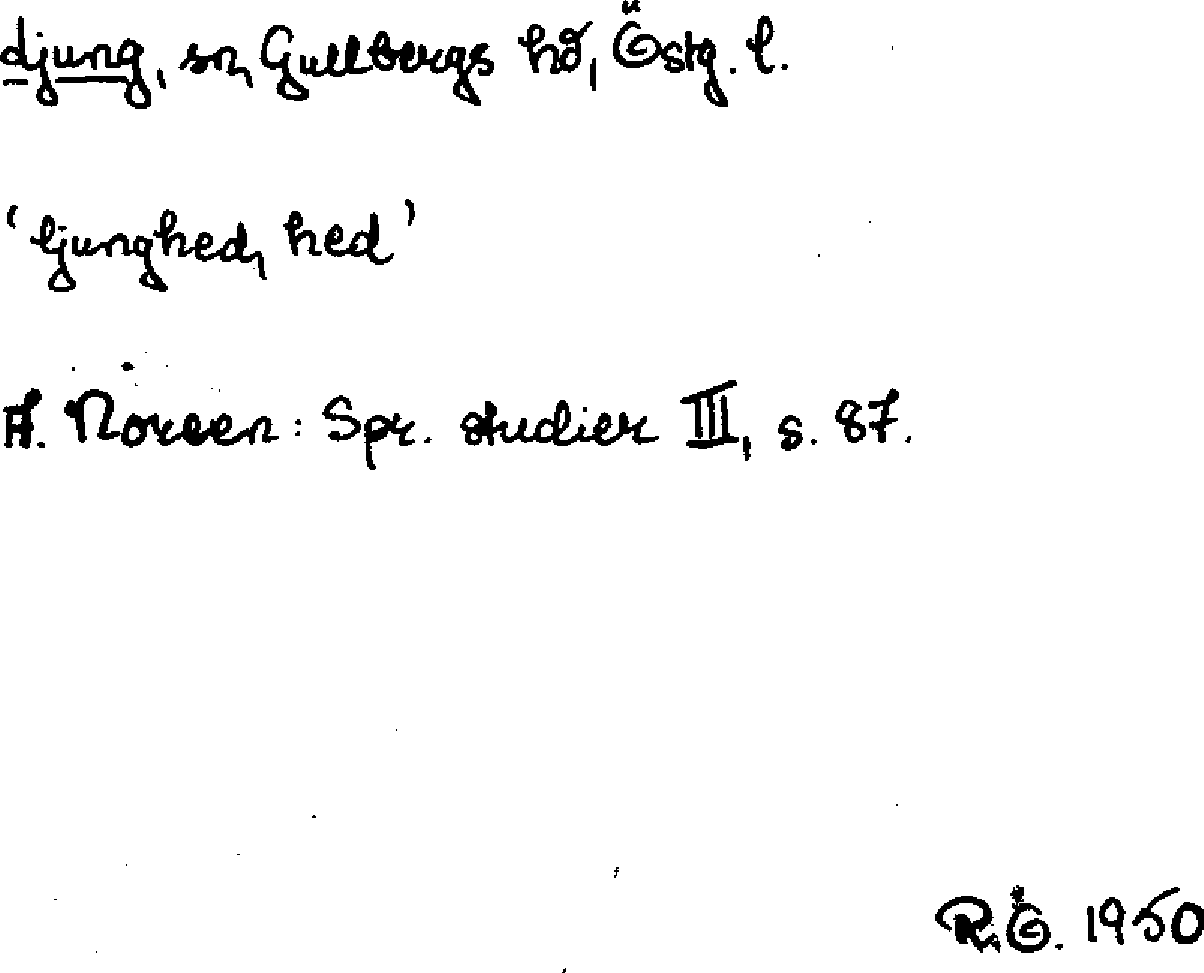 djung, sn, Gullbergs hd, Östg. l.
'ljunghed, hed'
A. Noreen: Spr. studier III, s. 87.
R. Ö. 1950